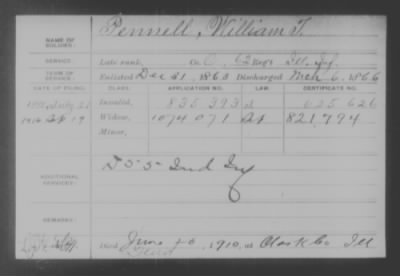 NAME OF SOLDIER: Pennell, William T.
SERVICE: Late rank, Co. C, 62 Reg't Ill. Inf.
TERM OF SERVICE: Enlisted Dec 31, 1863 Discharged Mch 6, 1866
DATE OF FILING. CLASS. APPLICATION NO. LAW. CERTIFICATE NO.
July 21 Invalid, 835 393 625 626
Widow, 1074 071 821,794
Minor,
ADDITIONAL SERVICES: Ind Inf
REMARKS:
Died June 1910, at Clark Co Ill